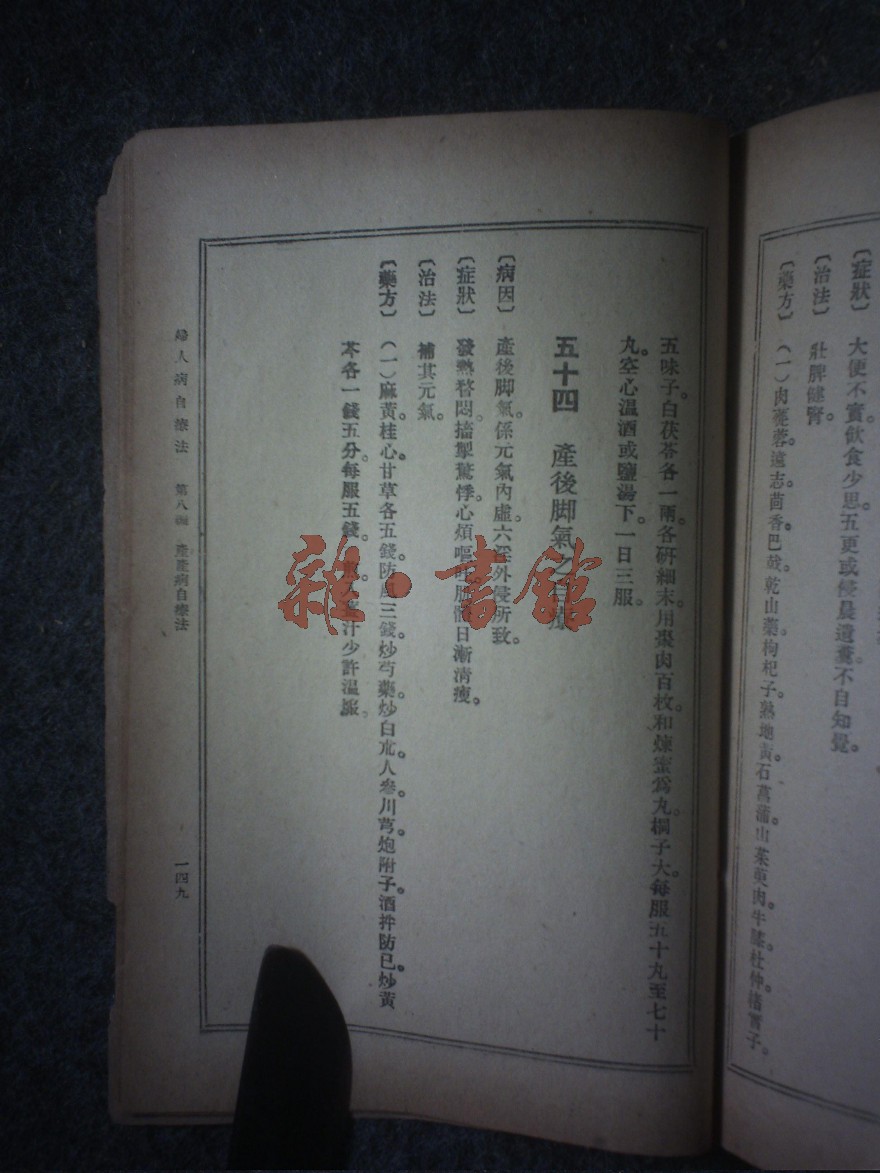 〔症狀〕 大便不實飲食少思。五更或侵晨遺糞。不自知覺。
〔治法〕 壯脾健腎。
〔藥方〕 （一）肉蓯蓉。遠志茴香巴戟。乾山藥枸杞子。熟地黃石菖蒲山茱萸肉牛膝杜仲楮實子。
五味子。白茯苓各一兩。各研細末。用棗肉百枚。和煉蜜爲丸。桐子大。每服五十九至七十
丸。空心溫酒或鹽湯下。一日三服。
五十四 產後脚氣之自療
〔病因〕 產後脚氣。係元氣內虛。六淫外侵所致。
〔症狀〕 發熱瞀悶。搐掣驚悸。心煩嘔吐。肌體日漸清瘦。
〔治法〕 補其元氣。
〔藥方〕 （一）麻黃。桂心。甘草各五錢。防風三錢。炒芍藥。炒白朮。人參。川芎。炮附子。酒拌防已。炒黃
芩各一錢五分。每服五錢。汁少許溫服。
婦人病自療法 第八編 產病自療法
一四九
雜·書館